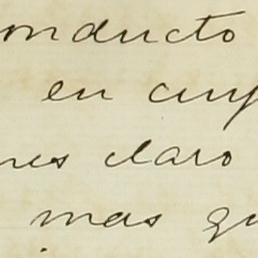 onducto
en cuy
nes claro
mas qu